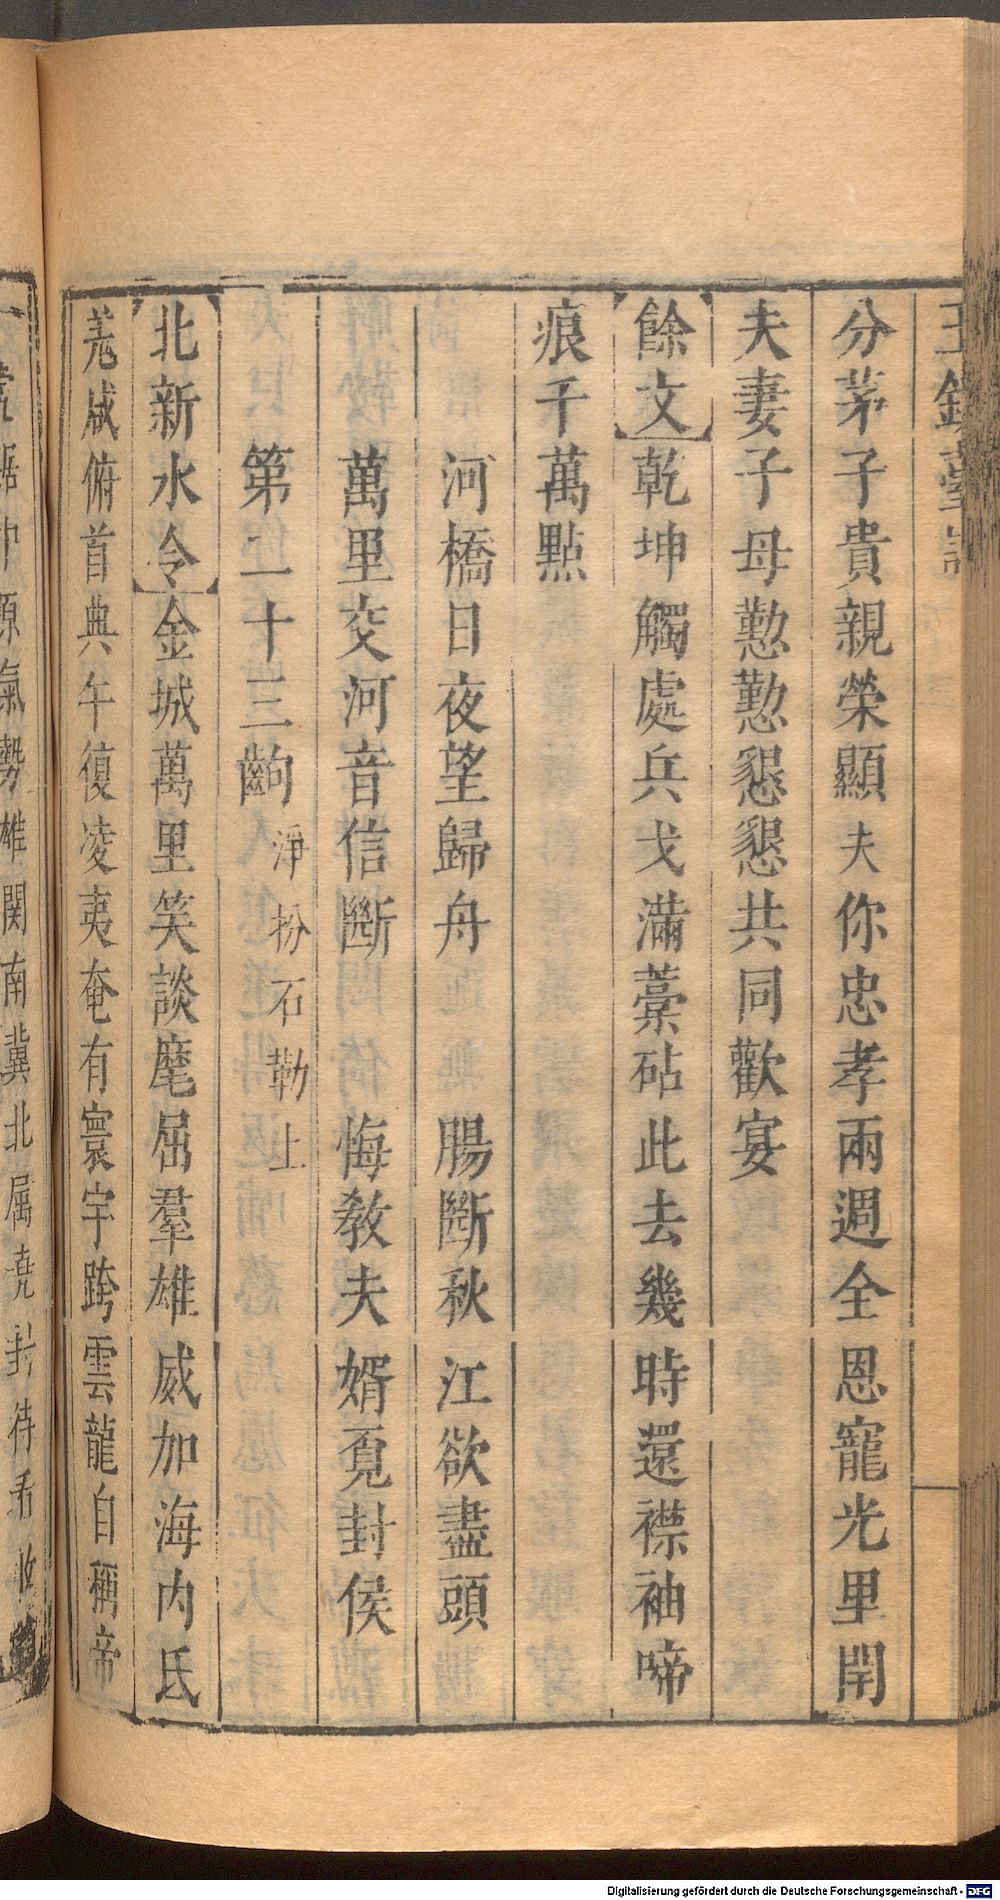 玉鏡臺記
分茅子貴親榮顯夫你忠孝兩週全恩寵光里閈
夫妻子母懃懃懇懇共同歡宴
餘文乾坤觸處兵戈滿藁砧此去幾時還襟袖啼
痕千萬點
河橋日夜望歸舟 腸斷秋江欲盡頭
萬里交河音信斷 悔教夫婿覔封侯
第二十三齣 淨扮石勒上
北新水令金城萬里笑談麾屈羣雄威加海内氐
羗咸俯首典午復凌夷奄有寰宇跨雲龍自稱帝
據中原氣勢雄関南冀北属堯封待看
Digitalisierung gefördert durch die Deutsche Forschungsgemeinschaft - DFG